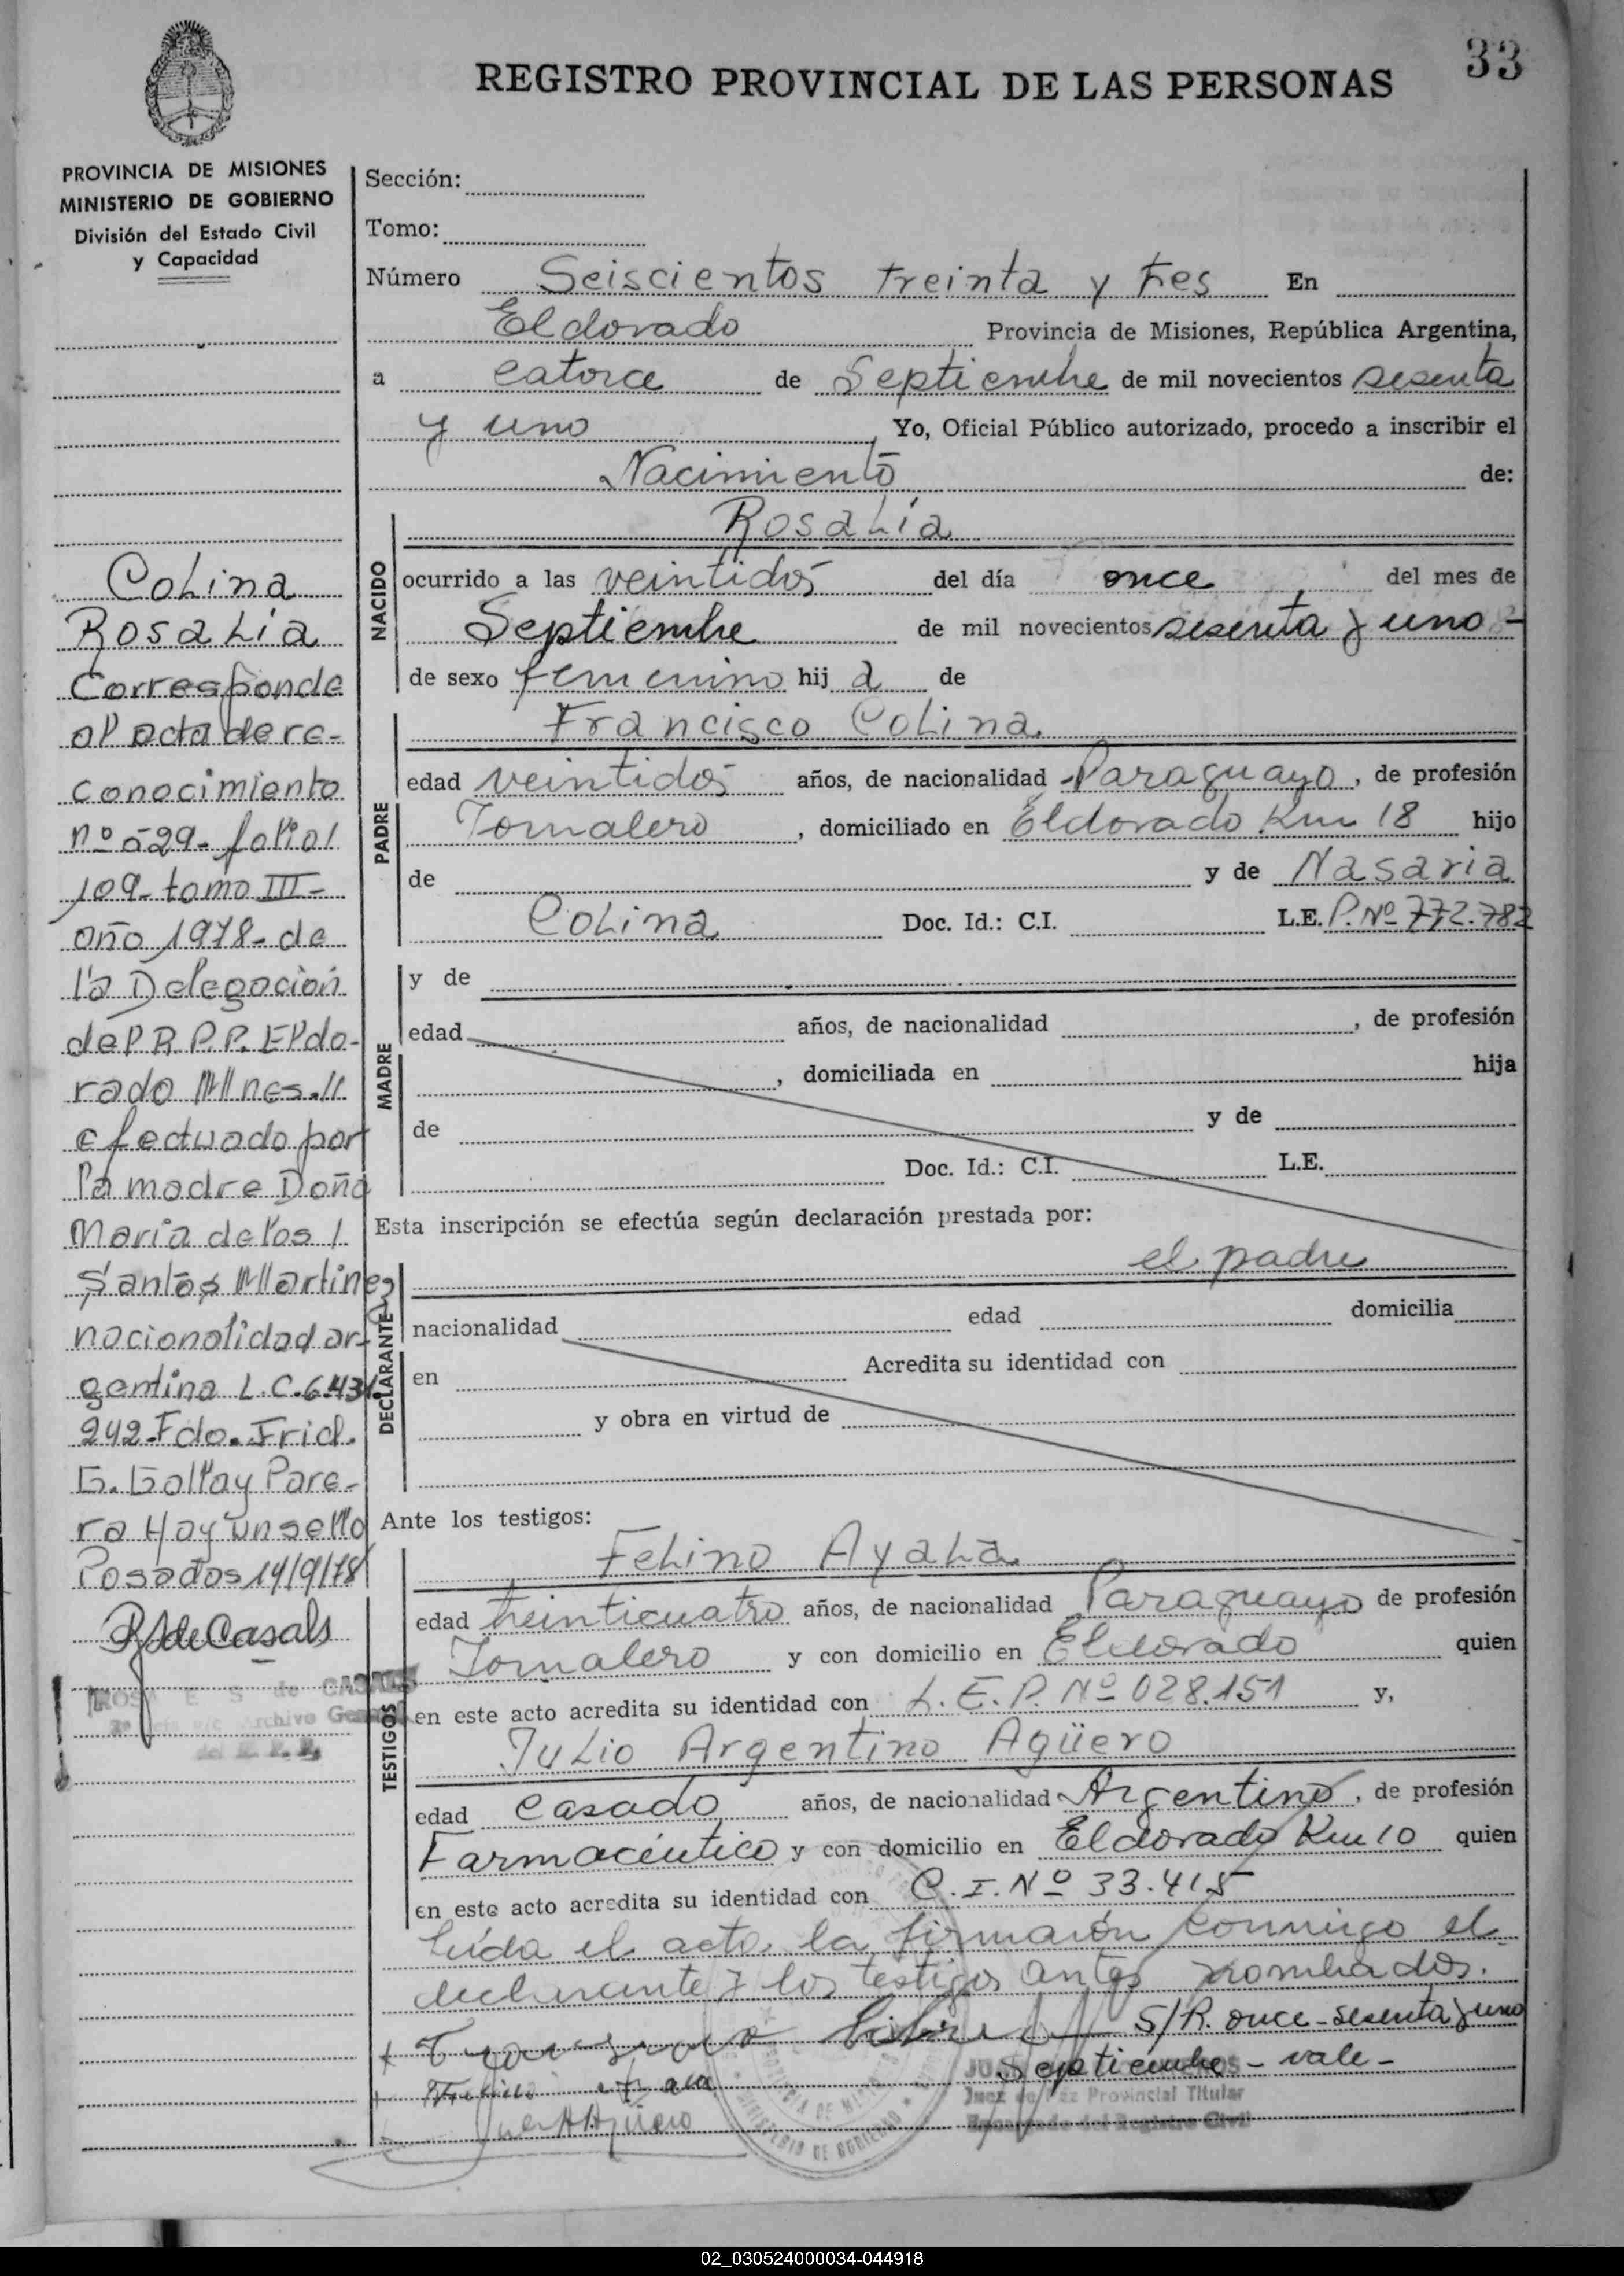 33
REGISTRO PROVINCIAL DE LAS PERSONAS
PROVINCIA DE MISIONES
MINISTERIO DE GOBIERNO
División del Estado Civil
y Capacidad
Colina
Rosalía
Corresponde
al acta de re-
conocimiento
nº 529- folio/
109- tomo III-
año 1978- de
la Delegación
del R.P.P. Eldo-
rado Mnes.//
efectuado por
la madre Doña
María de los /
Santos Martinez
nacionalidad ar-
gentina L.C. 6.431.
242-Fdo. Frid.
G. Gollay Pare-
ra Hay un sello
Posadas 14/9/78
RSdeCasals
ROSA E S de CASALS
Archivo General
del R. P. P.
Sección:
Tomo:
Número Seiscientos treinta y tres En
Eldorado Provincia de Misiones, República Argentina,
a catorce de Septiembre de mil novecientos sesenta
y uno Yo, Oficial Público autorizado, procedo a inscribir el
Nacimiento de:
NACIDO
Rosalía
ocurrido a las veintidos del día once del mes de
Septiembre de mil novecientos sesenta y uno -
de sexo femenino hij a de
PADRE
Francisco Colina
edad veintidos años, de nacionalidad Paraguayo, de profesión
Jornalero, domiciliado en Eldorado Km 18 hijo
de y de Nasaria
Colina Doc. Id.: C.I. L.E. P. Nº 772.782
MADRE
y de
edad años, de nacionalidad , de profesión
, domiciliada en hija
de y de
Doc. Id.: C.I. L.E.
Esta inscripción se efectúa según declaración prestada por:
DECLARANTE
el padre
nacionalidad edad domicilia
en Acredita su identidad con
y obra en virtud de
Ante los testigos:
TESTIGOS
Felino Ayala
edad treinticuatro años, de nacionalidad Paraguayo de profesión
Jornalero y con domicilio en Eldorado quien
en este acto acredita su identidad con L.E.P. Nº 028.151 y,
Julio Argentino Agüero
edad casado años, de nacionalidad Argentino, de profesión
Farmacéutico y con domicilio en Eldorado Km 10 quien
en este acto acredita su identidad con C.I. Nº 33.415
Leída el acta, la firmaron conmigo el
declarante y los testigos antes nombrados.
S/R. once - sesenta y uno
Septiembre - vale -
Juez de Paz Provincial Titular
Encargado del Registro Civil
MINISTERIO DE GOBIERNO
02_030524000034-044918